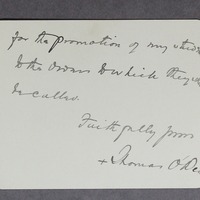 for the promotion of my
to the Orders to which they
be called.
Faithfully yours
+ Thomas O